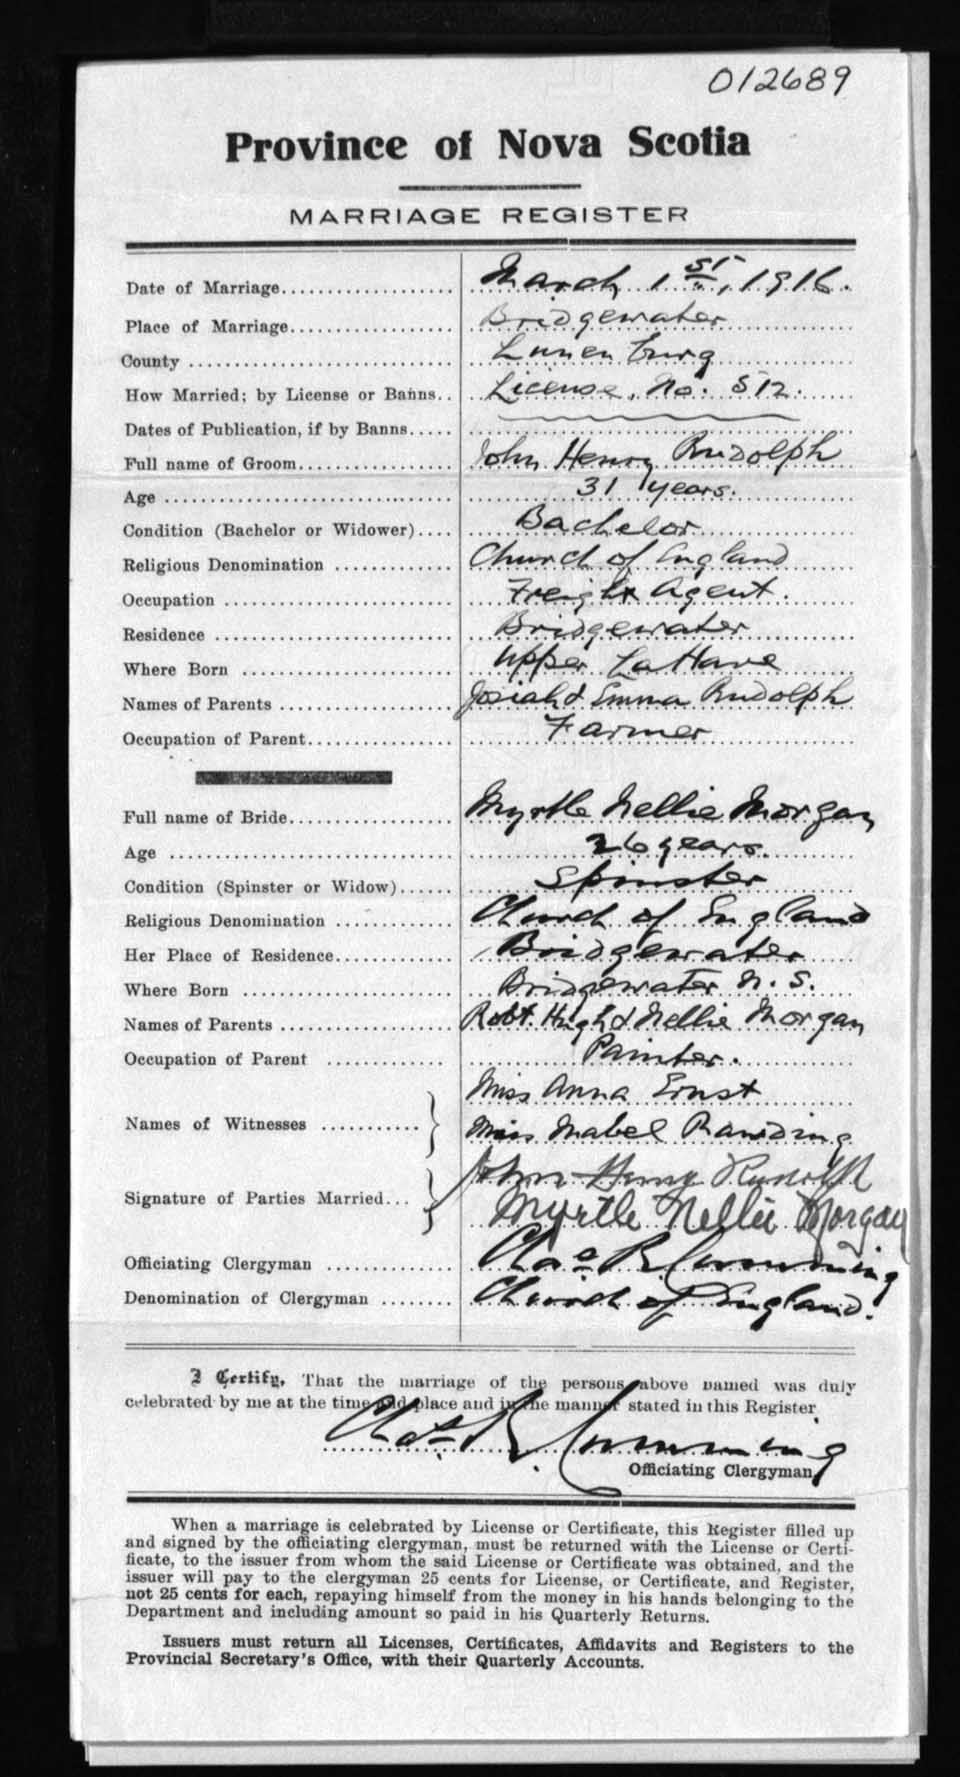 012689
Province of Nova Scotia
MARRIAGE REGISTER
Date of Marriage.................. March 1st, 1916.
Place of Marriage.................. Bridgewater
County .................. Lunenburg
How Married; by License or Banns.. License, No. 512.
Dates of Publication, if by Banns.....
Full name of Groom.................. John Henry Rudolph
Age .................. 31 years.
Condition (Bachelor or Widower).... Bachelor
Religious Denomination ............ Church of England
Occupation .................. Freight Agent.
Residence .................. Bridgewater
Where Born .................. Upper LaHave
Names of Parents .................. Josiah & Emma Rudolph
Occupation of Parent.................. Farmer
Full name of Bride.................. Myrtle Nellie Morgan
Age .................. 26 years.
Condition (Spinster or Widow)...... Spinster
Religious Denomination ............ Church of England
Her Place of Residence............ Bridgewater
Where Born .................. Bridgewater N. S.
Names of Parents .................. Robt. Hugh & Nellie Morgan
Occupation of Parent ............ Painter.
Miss Anna Ernst
Names of Witnesses ...........
Miss Mabel Rawding
John Henry Rudolph
Signature of Parties Married...
Myrtle Nellie Morgan
Officiating Clergyman ............ Chas R Cumming
Denomination of Clergyman ........ Church of England.
I Certify, That the marriage of the persons above named was duly
celebrated by me at the time and place and in the manner stated in this Register
Chas. R. Cumming
Officiating Clergyman
When a marriage is celebrated by License or Certificate, this Register filled up
and signed by the officiating clergyman, must be returned with the License or Certi-
ficate, to the issuer from whom the said License or Certificate was obtained, and the
issuer will pay to the clergyman 25 cents for License, or Certificate, and Register,
not 25 cents for each, repaying himself from the money in his hands belonging to the
Department and including amount so paid in his Quarterly Returns.
Issuers must return all Licenses, Certificates, Affidavits and Registers to the
Provincial Secretary's Office, with their Quarterly Accounts.